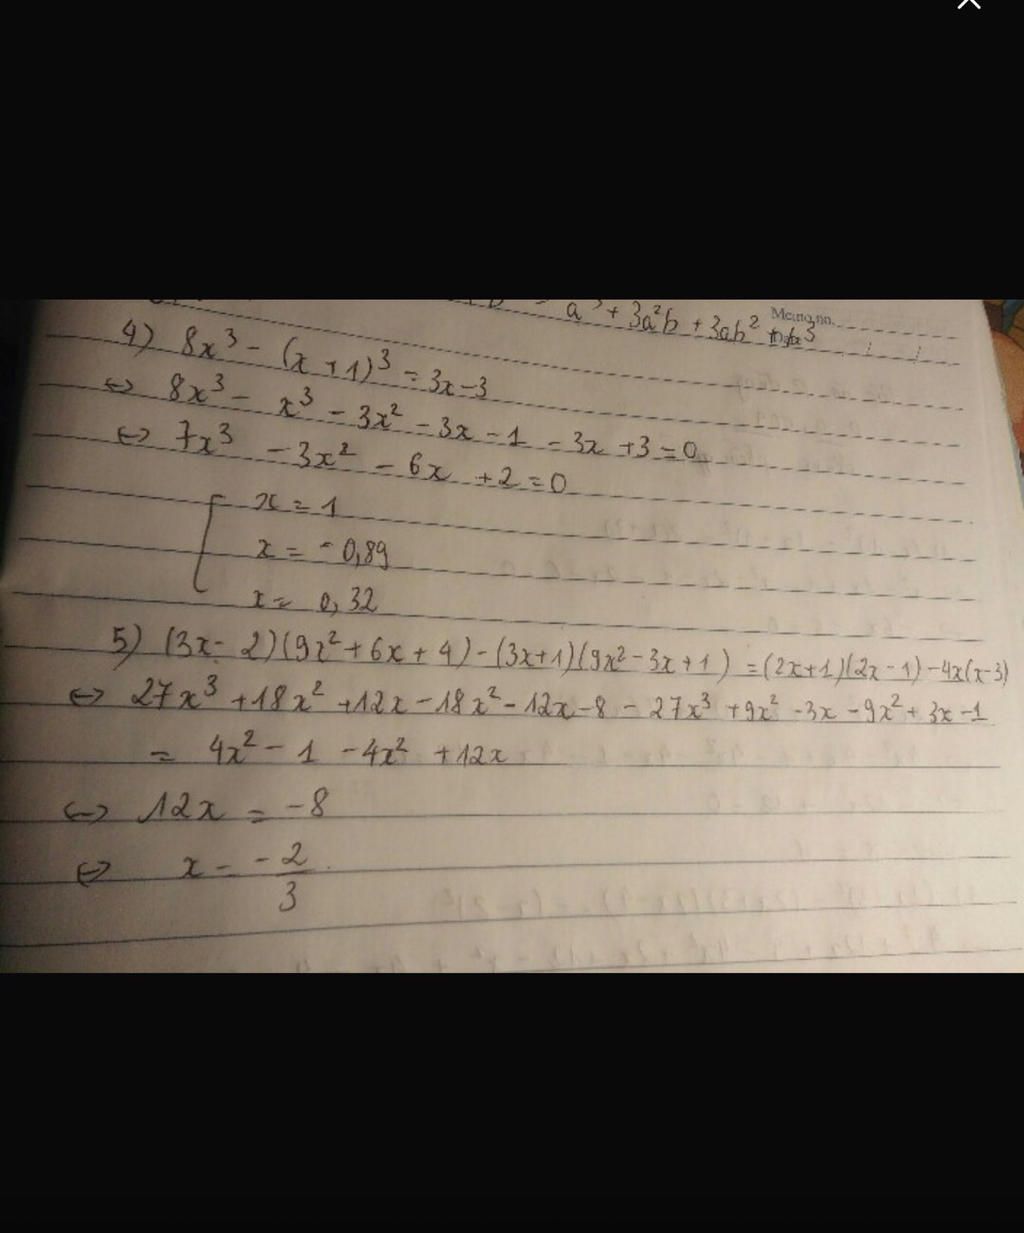 a³ + 3a²b + 3ab² + b³
Memo no.
4) 8x³ - (x + 1)³ = 3x - 3
⇔ 8x³ - x³ - 3x² - 3x - 1 - 3x + 3 = 0
⇔ 7x³ - 3x² - 6x + 2 = 0
x = 1
x = - 0,89
x = 0,32
5) (3x - 2)(9x² + 6x + 4) - (3x + 1)(9x² - 3x + 1) = (2x + 1)(2x - 1) - 4x(x - 3)
⇔ 27x³ + 18x² + 12x - 18x² - 12x - 8 - 27x³ + 9x² - 3x - 9x² + 3x - 1
= 4x² - 1 - 4x² + 12x
⇔ 12x = - 8
⇔ x = -2/3